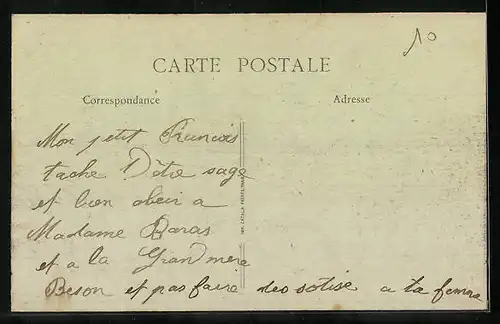 10
CARTE POSTALE
Correspondance
Adresse
Mon petit Francois
tache D'être sage
et bien obeir a
Madame Baras
et a la Grand mere
Beson et pas faire des sotise a ta femme
IMP. CATALA FRERES, PARIS